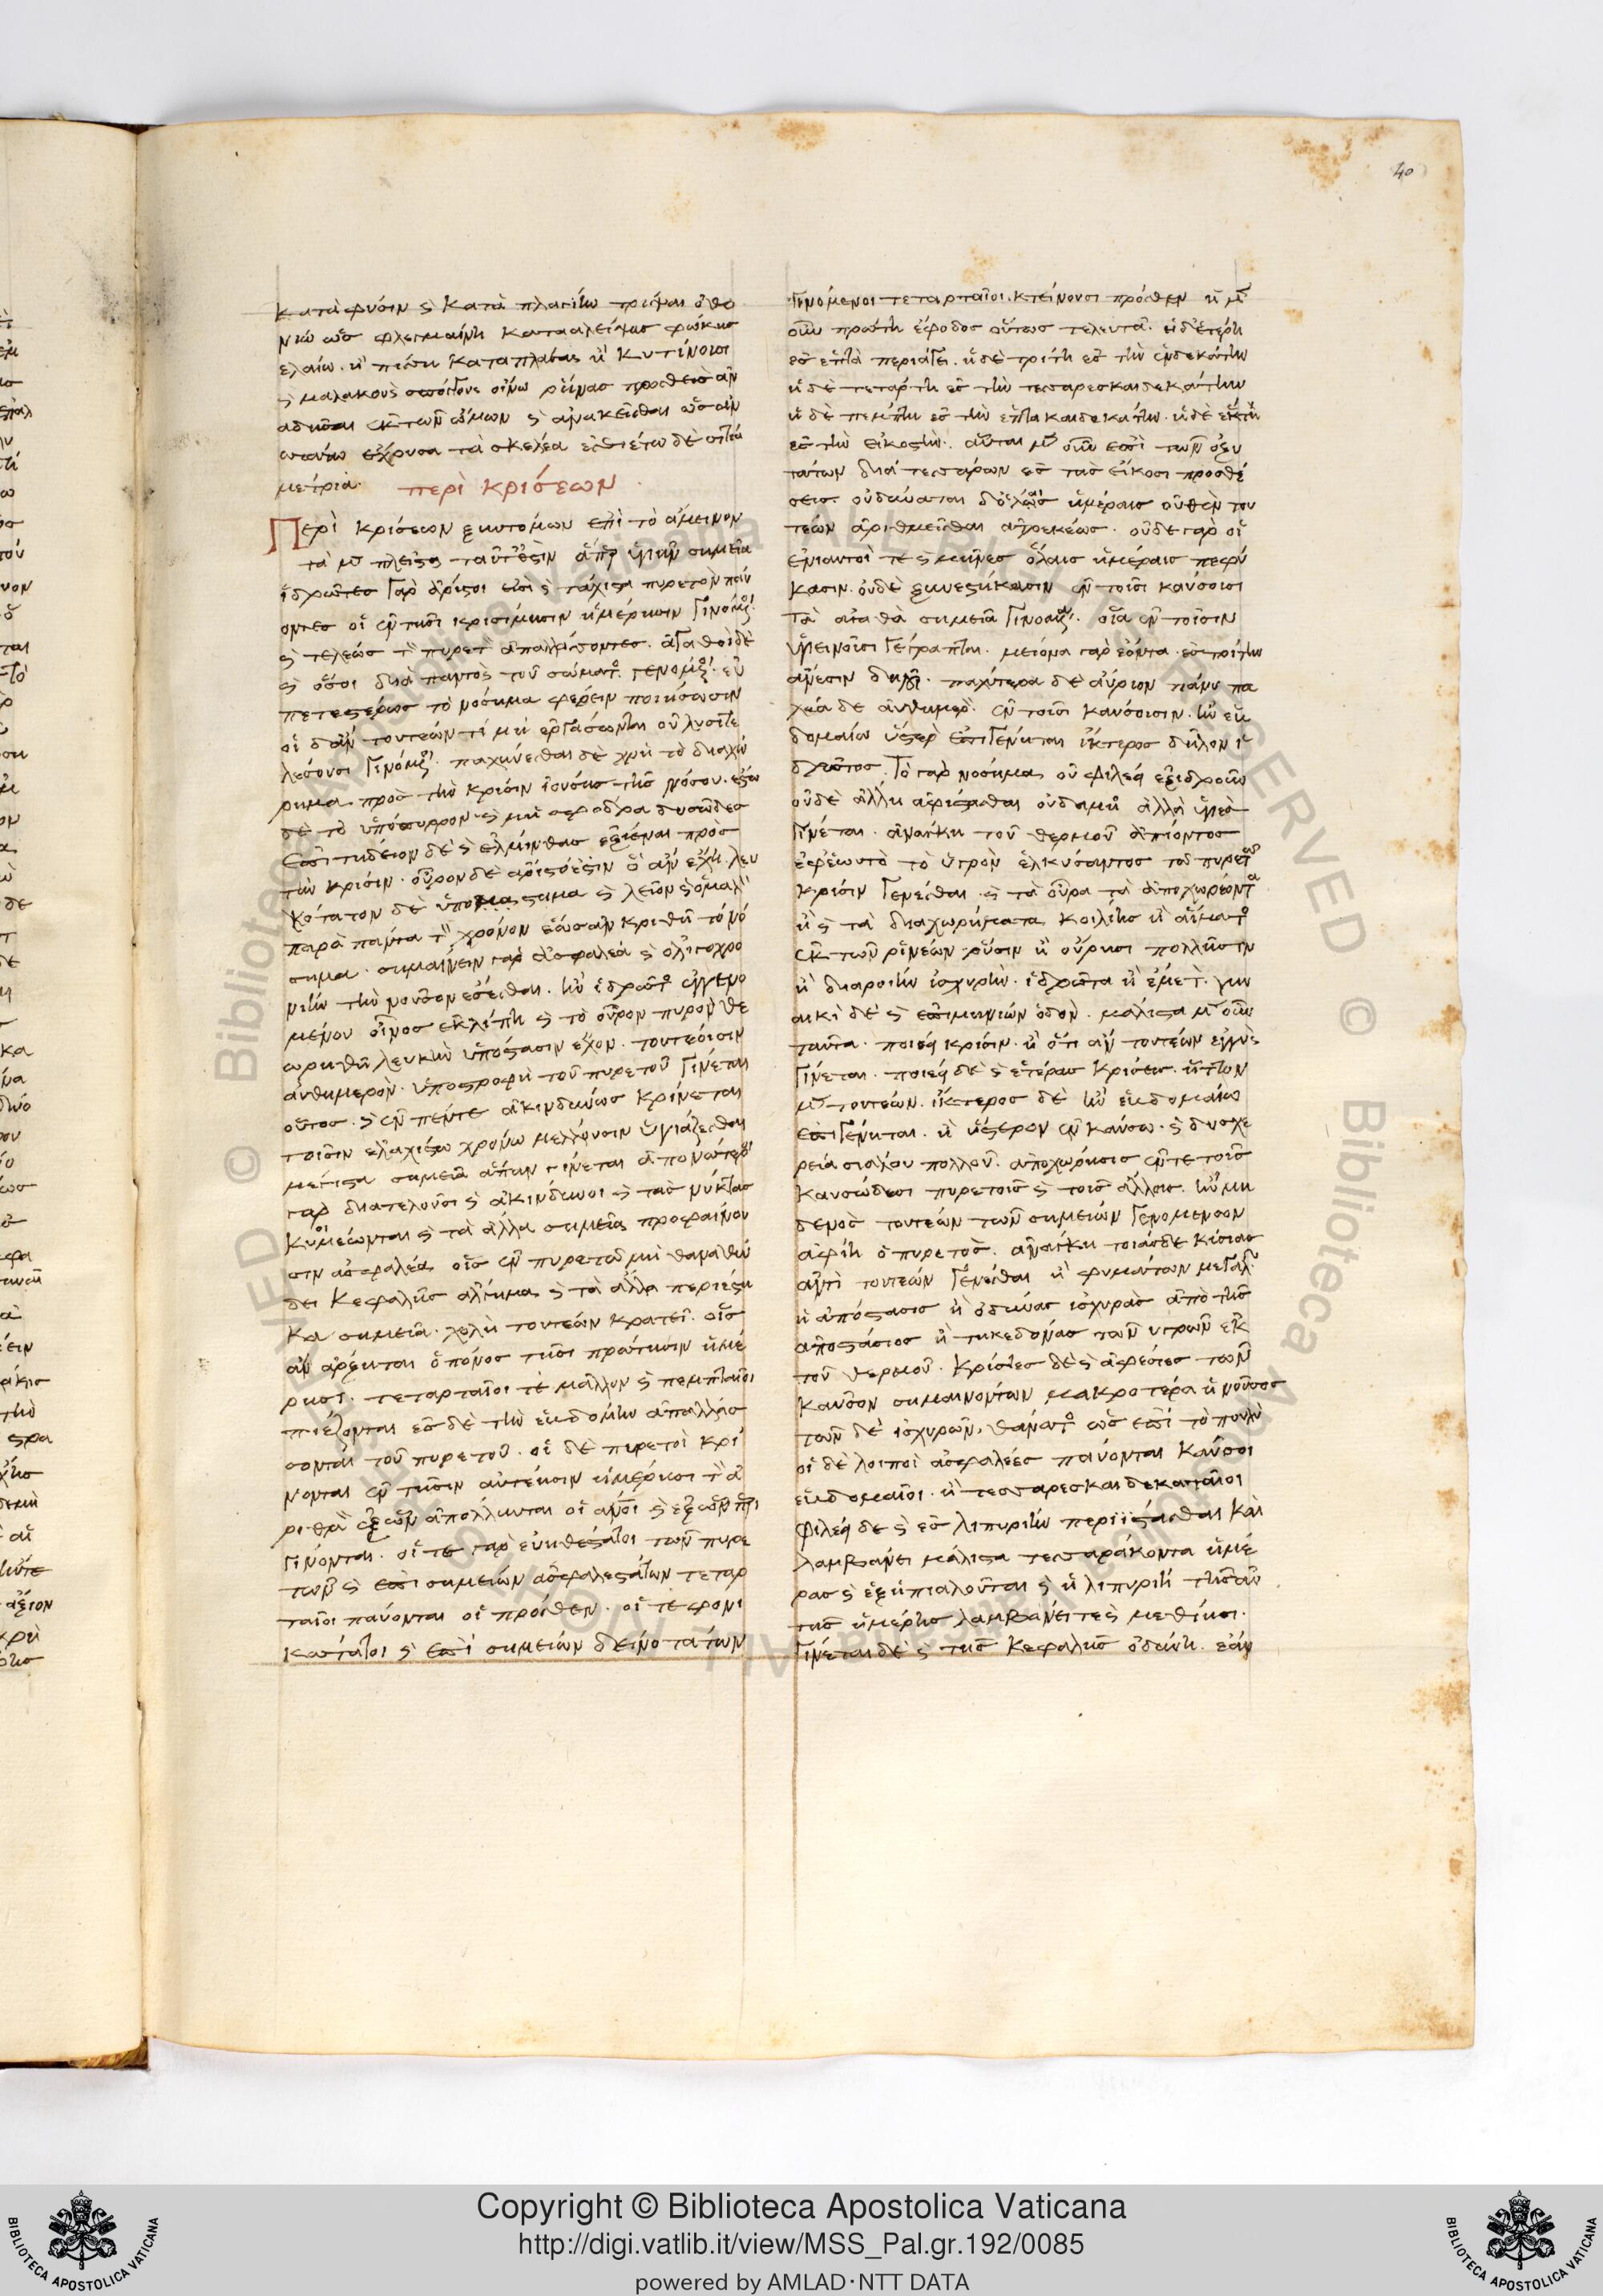 40
κατὰ φύσιν ϛ κατὰ πλαγίην τρίψαι ὀθο
νίω ὡς φλεγμαίνη καταλείψας φώκης
ελαίω. ἢ πίση καταπλάσας ἢ κυτίνοισι
ϛ μαλακοὺς σπόγγους οἴνω ῥήνας προσθεὶς ἀν
τῶν ὤμων ϛ ἀνακεῖσθαι ὡς ἀν
εχουσα τὰ σκελέα ἐσθιέτω δὲ σιτία
μέτρια. περὶ κρίσεων.
Περὶ κρίσεων ξυντόμων επὶ τὸ άμεινον
τὰ μὲν πλεῖστα ταῦτ᾽ ἐστὶν ἅπερ ὑγιῆν σημεῖα
ἱδρῶτες Γὰρ άριστοι εἰσὶ ϛ τάχιστα πυρετὸν παύ
οντες οἱ ἐν τῆσι κρισίμησιν ἡμέρησιν Γινόμενοι.
ϛ τελέως τὸν πυρετὸν ἀπαλλάσσοντες. ἀγαθοὶ δὲ
ϛ ὅσοι διὰ παντὸς τοῦ σώματος Γενόμενοι. εὐ
πετεστέρως τὸ νόσημα φέρειν ποιήσωσιν
οἱ δ᾽ ἂν τουτέων τί μὴ ἐργάσωνται οὐ λυσιτε
λέουσι Γινόμενοι. παχύνεσθαι δὲ χρὴ τὸ διαχώ
ρημα. πρὸς τὴν κρίσιν ἰούσης τῆς νόσου. έστω
δὲ τὸ ὑπόπυρρον. ϛ μὴ σφόδρα δυσῶδες
ἐπιτήδειον δὲ ϛ ἕλμινθας ἐξιέναι πρὸς
τὴν κρίσιν. οὖρον δὲ άριστόν ἐστιν ὃ ἂν έχη λευ
κότατον δὲ ϛ λεῖον ϛ ὁμαλὸν
παρὰ πάντα τὸν χρόνον ἕως ἂν κριθῆ τὸ νό
σημα. σημαίνειν γὰρ ἀσφαλέα ϛ ὀλιγοχρο
νίην τὴν νοῦσον έσεσθαι. ἢν ἱδρῶτος ἐγγενο
μένου οἶνος ἐκλίπη ϛ τὸ οὖρον πυρὸν θε
ωρηθῆ λευκὴν ὑπόστασιν έχον. τουτέοισιν
αὐθημερὸν. ὑποστροφὴ τοῦ πυρετοῦ Γίνεται
οὗτος. ϛ ἐν πέντε ἀκινδύνως κρίνεται
τοῖσιν ἐλαχίστω χρόνω μέλλουσιν ὑγιάζεσθαι
μέγιστα σημεῖα ἅπην γίνεται ἀπονώτεροι
γὰρ διατελοῦσι ϛ ἀκίνδυνοι ϛ τὰς νύκτας
κοιμέωνται ϛ τὰ άλλα σημεῖα προφαίνου
σιν ἀσφαλέα οἷς ἐν πυρετῶ μὴ θανατώ
δει κεφαλῆς άλγημα ϛ τὰ άλλα περιέστη
κα σημεῖα. χολὴ τουτέων κρατεῖ. οἷς
ἂν άρξηται ὁ πόνος τῆσι πρώτησιν ἡμέ
ρησι. τεταρταῖοι τὲ μᾶλλον ϛ πεμπταῖοι
πιέζονται ἐς δὲ τὴν ἑβδόμην ἀπαλλάσ
σονται τοῦ πυρετοῦ. οἱ δὲ πυρετοὶ κρί
νονται ἐν τῆσιν αὐτέησιν ἡμέρησι τὸν ἀ
ριθμὸν ἐξ ὧν ἀπόλλυνται οἱ άνθρωποι ϛ ἐξ ὧν
Γίνονται. οἵ τε γὰρ εὐηθέστατοι τῶν πυρε
τῶν ϛ ἐπὶ σημείων ἀσφαλεστάτων τεταρ
ταῖοι παύονται οἱ πρόσθεν. οἵ τε φονι
κώτατοι ϛ ἐπὶ σημείων δεινοτάτων
Γινόμενοι τεταρταῖοι. κτείνουσι πρόσθεν ἡ μὲν
οὖν πρώτη έφοδος οὕτως τελευτᾶ. ἡ δ᾽ ετέρη
ἐς ἑπτὰ περιάγει. ἡ δὲ τρίτη ἐς τὴν ἑνδεκάτην
ἡ δὲ τετάρτη ἐς τὴν τεσσαρεσκαιδεκάτην
ἡ δὲ πέμπτη ἐς τὴν ἑπτακαιδεκάτην. ἡ δὲ έκτη
ἐς τὴν εἰκοστὴν. αὗται μὲν οὖν εἰσὶ τῶν ὀξυ
τάτων διὰ τεσσάρων ἐς τὰς είκοσι προσθέ
σεις. οὐ δύναται δ᾽ ὅλαις ἡμέραις οὐθὲν του
τέων ἀριθμεῖσθαι ἀτρεκέως. οὐδὲ γὰρ οἱ
ἐνιαυτοὶ τὲ ϛ μῆνες ὅλαις ἡμέραις πεφύ
κασιν. οὐδὲ ξυνεστήκασιν ἐν τοῖσι καύσοισι
τὰ ἀγαθὰ σημεῖα Γινόμενα. οἷα ἐν τοῖσιν
ὑγιεινοῖσι Γέγραπται. μείονα γὰρ ἐόντα. ἐς τρίτην
άνεσιν δηλοῖ. παχύτερα δὲ αύριον πάνυ πα
χέα δὲ αὐθημερόν. ἐν τοῖσι καύσοισιν. ἢν ἑβ
δομαίω ὕστερον ἐπιγένηται ίκτερος δῆλον ἱ
δρῶτος. Τὸ γὰρ νόσημα οὐ φιλέει ἐξιδροῦν
οὐδὲ άλλη ἀφίστασθαι οὐδαμῆ ἀλλὰ ὑγιὲς
Γίνεται. ἀνάγκη τοῦ θερμοῦ ἀπιόντος
τὸ ὑγρὸν ἑλκύσαντος τοῦ πυρετοῦ
κρίσιν Γενέσθαι ϛ τὰ οὖρα τὰ ἀποχωρέοντα
ἢ ϛ τὰ διαχωρήματα κοιλίης ἢ αἵματος
ἐκ τῶν ῥινέων ῥύσιν ἢ ούρησι πολλῆσιν
ἢ διαρροίην ἰσχυρὴν. ἱδρῶτα ἢ έμετον. γυν
αικὶ δὲ ϛ ἐπιμηνίων ὁδὸν. μάλιστα μὲν οὖν
ταῦτα. ποιέει κρίσιν. ἢ ὅτι ἂν τουτέων ἐγγὺς
Γίνεται. ποιέει δὲ ϛ ἑτέρας κρίσιας. ἧττον
μὲν τουτέων. ίκτερος δὲ ἢν ἑβδομαίω
ἐπιγένηται. ἢ ὕστερον ἐν καύσω. ϛ δυσχε
ρεία σιάλου πολλοῦ. ἀποχώρησις ἔν τε τοῖς
καυσώδεσι πυρετοῖς ϛ τοῖς άλλοις. ἢν μη
δενὸς τουτέων τῶν σημείων Γενομένων
ἀφῆ ὁ πυρετὸς. ἀνάγκη τοιάσδε κρίσιας
ἀντὶ τουτέων Γενέσθαι ἢ φυμάτων μεγάλων
ἢ ἀπόστασις ἢ ὀδύνας ἰσχυρὰς ἀπὸ τῆς
ἀποστάσιος ἢ τηκεδόνας τῶν υγρῶν ἐκ
τοῦ θερμοῦ. κρίσιες δὲ ϛ ἀφέσιες τῶν
καῦσον σημαινόντων μακροτέρα ἡ νοῦσος
τῶν δὲ ἰσχυρῶν, θάνατος ὡς ἐπὶ τὸ πουλὺ
οἱ δὲ λοιποὶ ἀσφαλέες παύονται καῦσοι
ἑβδομαῖοι. ἢ τεσσαρεσκαιδεκαταῖοι
φιλέει δὲ ϛ ἐς λιπυρίην περιΐστασθαι καὶ
λαμβάνει μάλιστα τεσσαράκοντα ἡμέ
ρας ϛ ἐξηπιαλοῦται ϛ ἡ λιπυρίη τῆς αὐ
τῆς ἡμέρης λαμβάνει τὲ ϛ μεθίησι.
Γίνεται δὲ ϛ τῆς κεφαλῆς ὀδύνη. ἐὰν
Copyright © Biblioteca Apostolica Vaticana
http://digi.vatlib.it/view/MSS_Pal.gr.192/0085
powered by AMLAD·NTT DATA
BIBLIOTECA APOSTOLICA VATICANA
BIBLIOTECA APOSTOLICA VATICANA